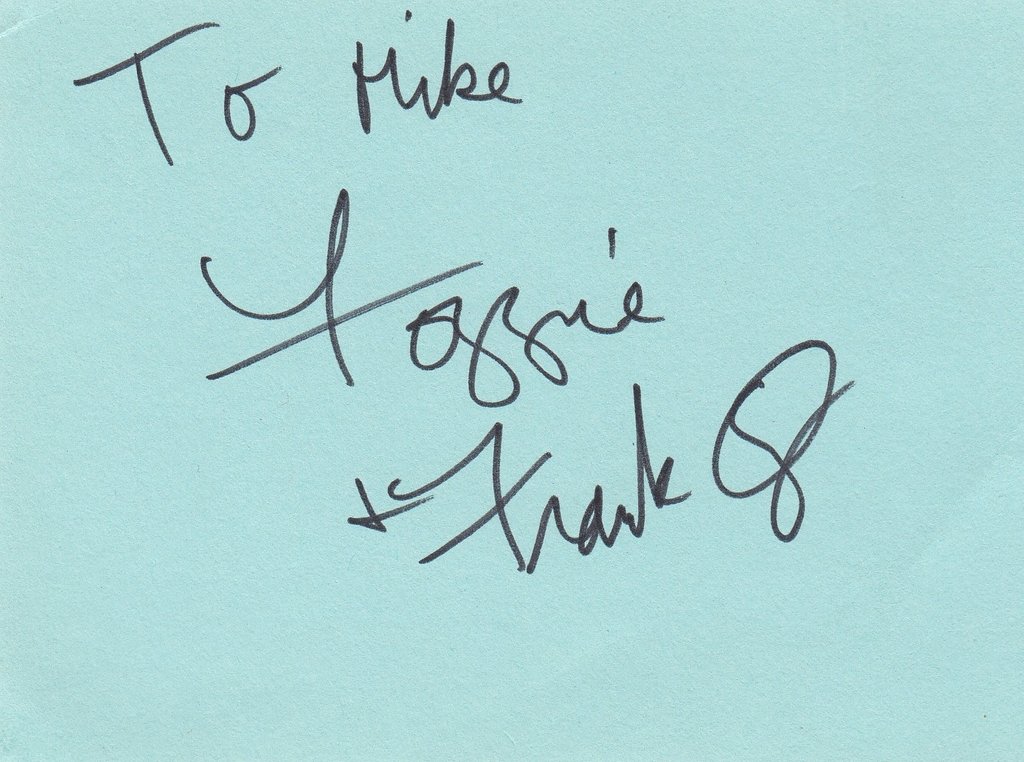 To Mike
Fozzie
+ Frank Oz